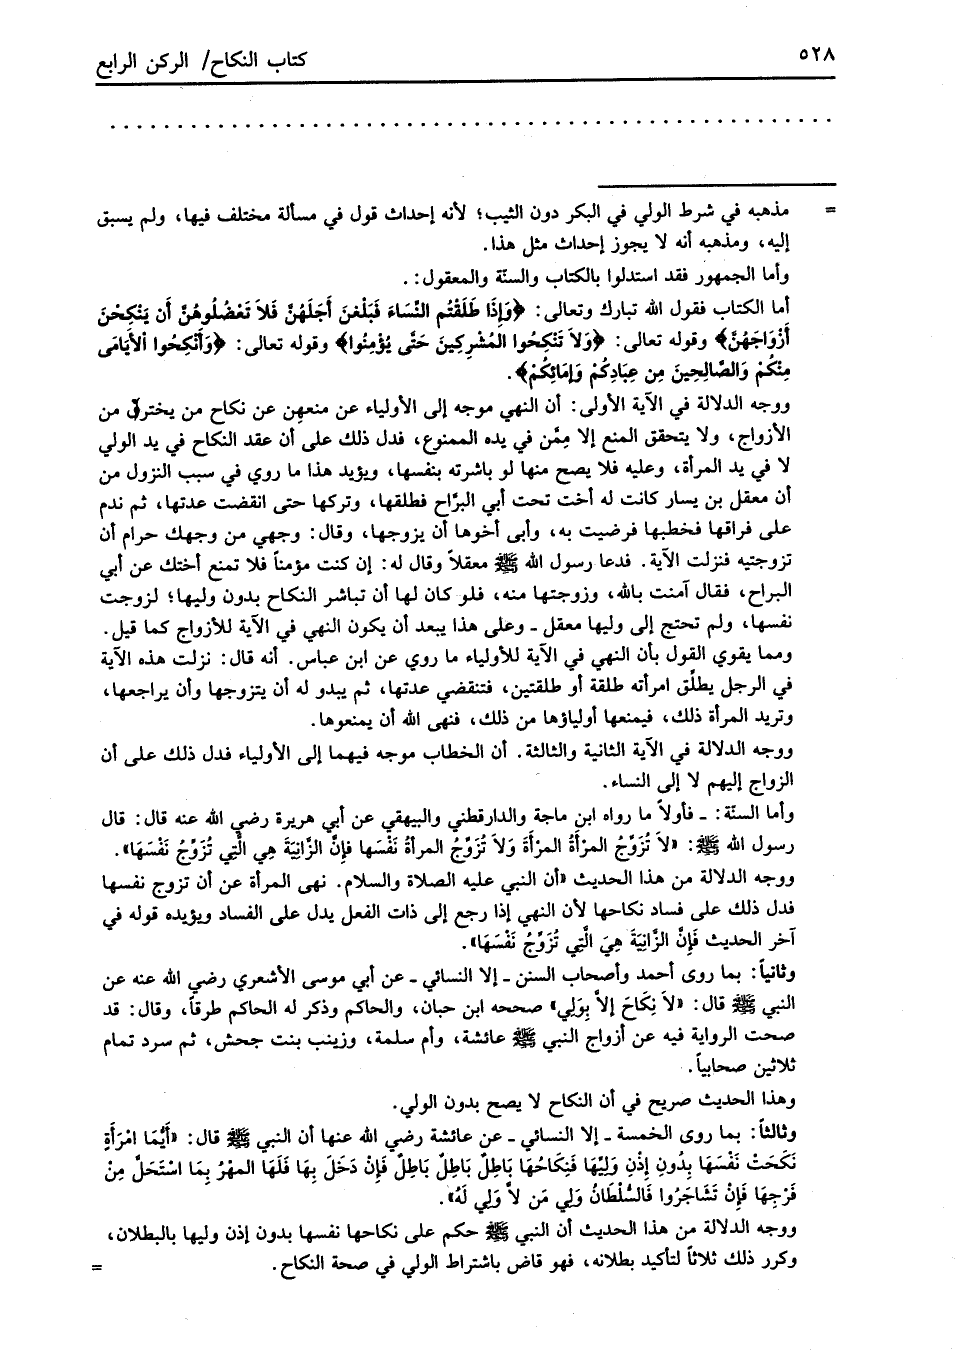 ٥٢٨
كتاب النكاح/ الركن الرابع
= مذهبه في شرط الولي في البكر دون الثيب؛ لأنه إحداث قول في مسألة مختلف فيها، ولم يسبق
إليه، ومذهبه أنه لا يجوز إحداث مثل هذا.
وأما الجمهور فقد استدلوا بالكتاب والسنّة والمعقول:.
أما الكتاب فقول الله تبارك وتعالى: ﴿وَإِذَا طَلَّقْتُم النِّسَاءَ فَبَلَغْنَ أَجَلَهُنَّ فَلاَ تَعْضُلُوهُنَّ أَن يَنْكِحْنَ
أَزْوَاجَهُنَّ﴾ وقوله تعالى: ﴿وَلاَ تَنْكِحُوا المُشْرِكِينَ حَتَّى يُؤْمِنُوا﴾ وقوله تعالى: ﴿وَأَنْكِحُوا الأَيَامَى
مِنْكُمْ وَالصَّالِحِينَ مِن عِبَادِكُمْ وَإِمَائِكُمْ﴾.
ووجه الدلالة في الآية الأولى: أن النهي موجه إلى الأولياء عن منعهن عن نكاح من يخترن من
الأزواج، ولا يتحقق المنع إلا مِمَّن في يده الممنوع، فدل ذلك على أن عقد النكاح في يد الولي
لا في يد المرأة، وعليه فلا يصح منها لو باشرته بنفسها، ويؤيد هذا ما روي في سبب النزول من
أن معقل بن يسار كانت له أخت تحت أبي البرَّاح فطلقها، وتركها حتى انقضت عدتها، ثم ندم
على فراقها فخطبها فرضيت به، وأبى أخوها أن يزوجها، وقال: وجهي من وجهك حرام أن
تزوجتيه فنزلت الآية. فدعا رسول الله ﷺ معقلاً وقال له: إن كنت مؤمناً فلا تمنع أختك عن أبي
البراح، فقال آمنت بالله، وزوجتها منه، فلو كان لها أن تباشر النكاح بدون وليها؛ لزوجت
نفسها، ولم تحتج إلى وليها معقل ـ وعلى هذا يبعد أن يكون النهي في الآية للأزواج كما قيل.
ومما يقوي القول بأن النهي في الآية للأولياء ما روي عن ابن عباس. أنه قال: نزلت هذه الآية
في الرجل يطلّق امرأته طلقة أو طلقتين، فتنقضي عدتها، ثم يبدو له أن يتزوجها وأن يراجعها،
وتريد المرأة ذلك، فيمنعها أولياؤها من ذلك، فنهى الله أن يمنعوها.
ووجه الدلالة في الآية الثانية والثالثة. أن الخطاب موجه فيهما إلى الأولياء فدل ذلك على أن
الزواج إليهم لا إلى النساء.
وأما السنّة: ـ فأولاً ما رواه ابن ماجة والدارقطني والبيهقي عن أبي هريرة رضي الله عنه قال: قال
رسول الله ﷺ: «لاَ تُزَوِّجُ المرْأَةُ المرْأَةَ وَلاَ تُزَوِّجُ المرأةُ نَفْسَها فإنَّ الزَّانِيَةَ هي الَّتِي تُزَوِّجُ نَفْسَهَا».
ووجه الدلالة من هذا الحديث «أن النبي عليه الصلاة والسلام. نهى المرأة عن أن تزوج نفسها
فدل ذلك على فساد نكاحها لأن النهي إذا رجع إلى ذات الفعل يدل على الفساد ويؤيده قوله في
آخر الحديث فَإِنَّ الزَّانِيَةَ هِيَ الَّتِي تُزَوِّجُ نَفْسَهَا».
وثانياً: بما روى أحمد وأصحاب السنن ـ إلا النسائي ـ عن أبي موسى الأشعري رضي الله عنه عن
النبي ﷺ قال: «لاَ نِكَاحَ إلاَّ بِوَلِي» صححه ابن حبان، والحاكم وذكر له الحاكم طرقاً، وقال: قد
صحت الرواية فيه عن أزواج النبي ﷺ عائشة، وأم سلمة، وزينب بنت جحش، ثم سرد تمام
ثلاثين صحابياً.
وهذا الحديث صريح في أن النكاح لا يصح بدون الولي.
وثالثاً: بما روى الخمسة ـ إلا النسائي ـ عن عائشة رضي الله عنها أن النبي ﷺ قال: «أَيُّمَا امْرَأَةٍ
نَكَحَتْ نَفْسَهَا بِدُونِ إِذْنِ وَلِيِّهَا فَنِكَاحُهَا بَاطِلٌ بَاطِلٌ بَاطِلٌ فَإِنْ دَخَلَ بِهَا فَلَهَا المهْرُ بِمَا اسْتَحَلَّ مِنْ
فَرْجِهَا فَإِنْ تَشَاجَرُوا فَالسُّلْطَانُ وَلِي مَن لاَّ وَلِي لَهُ».
ووجه الدلالة من هذا الحديث أن النبي ﷺ حكم على نكاحها نفسها بدون إذن وليها بالبطلان،
وكرر ذلك ثلاثاً لتأكيد بطلانه، فهو قاض باشتراط الولي في صحة النكاح. =